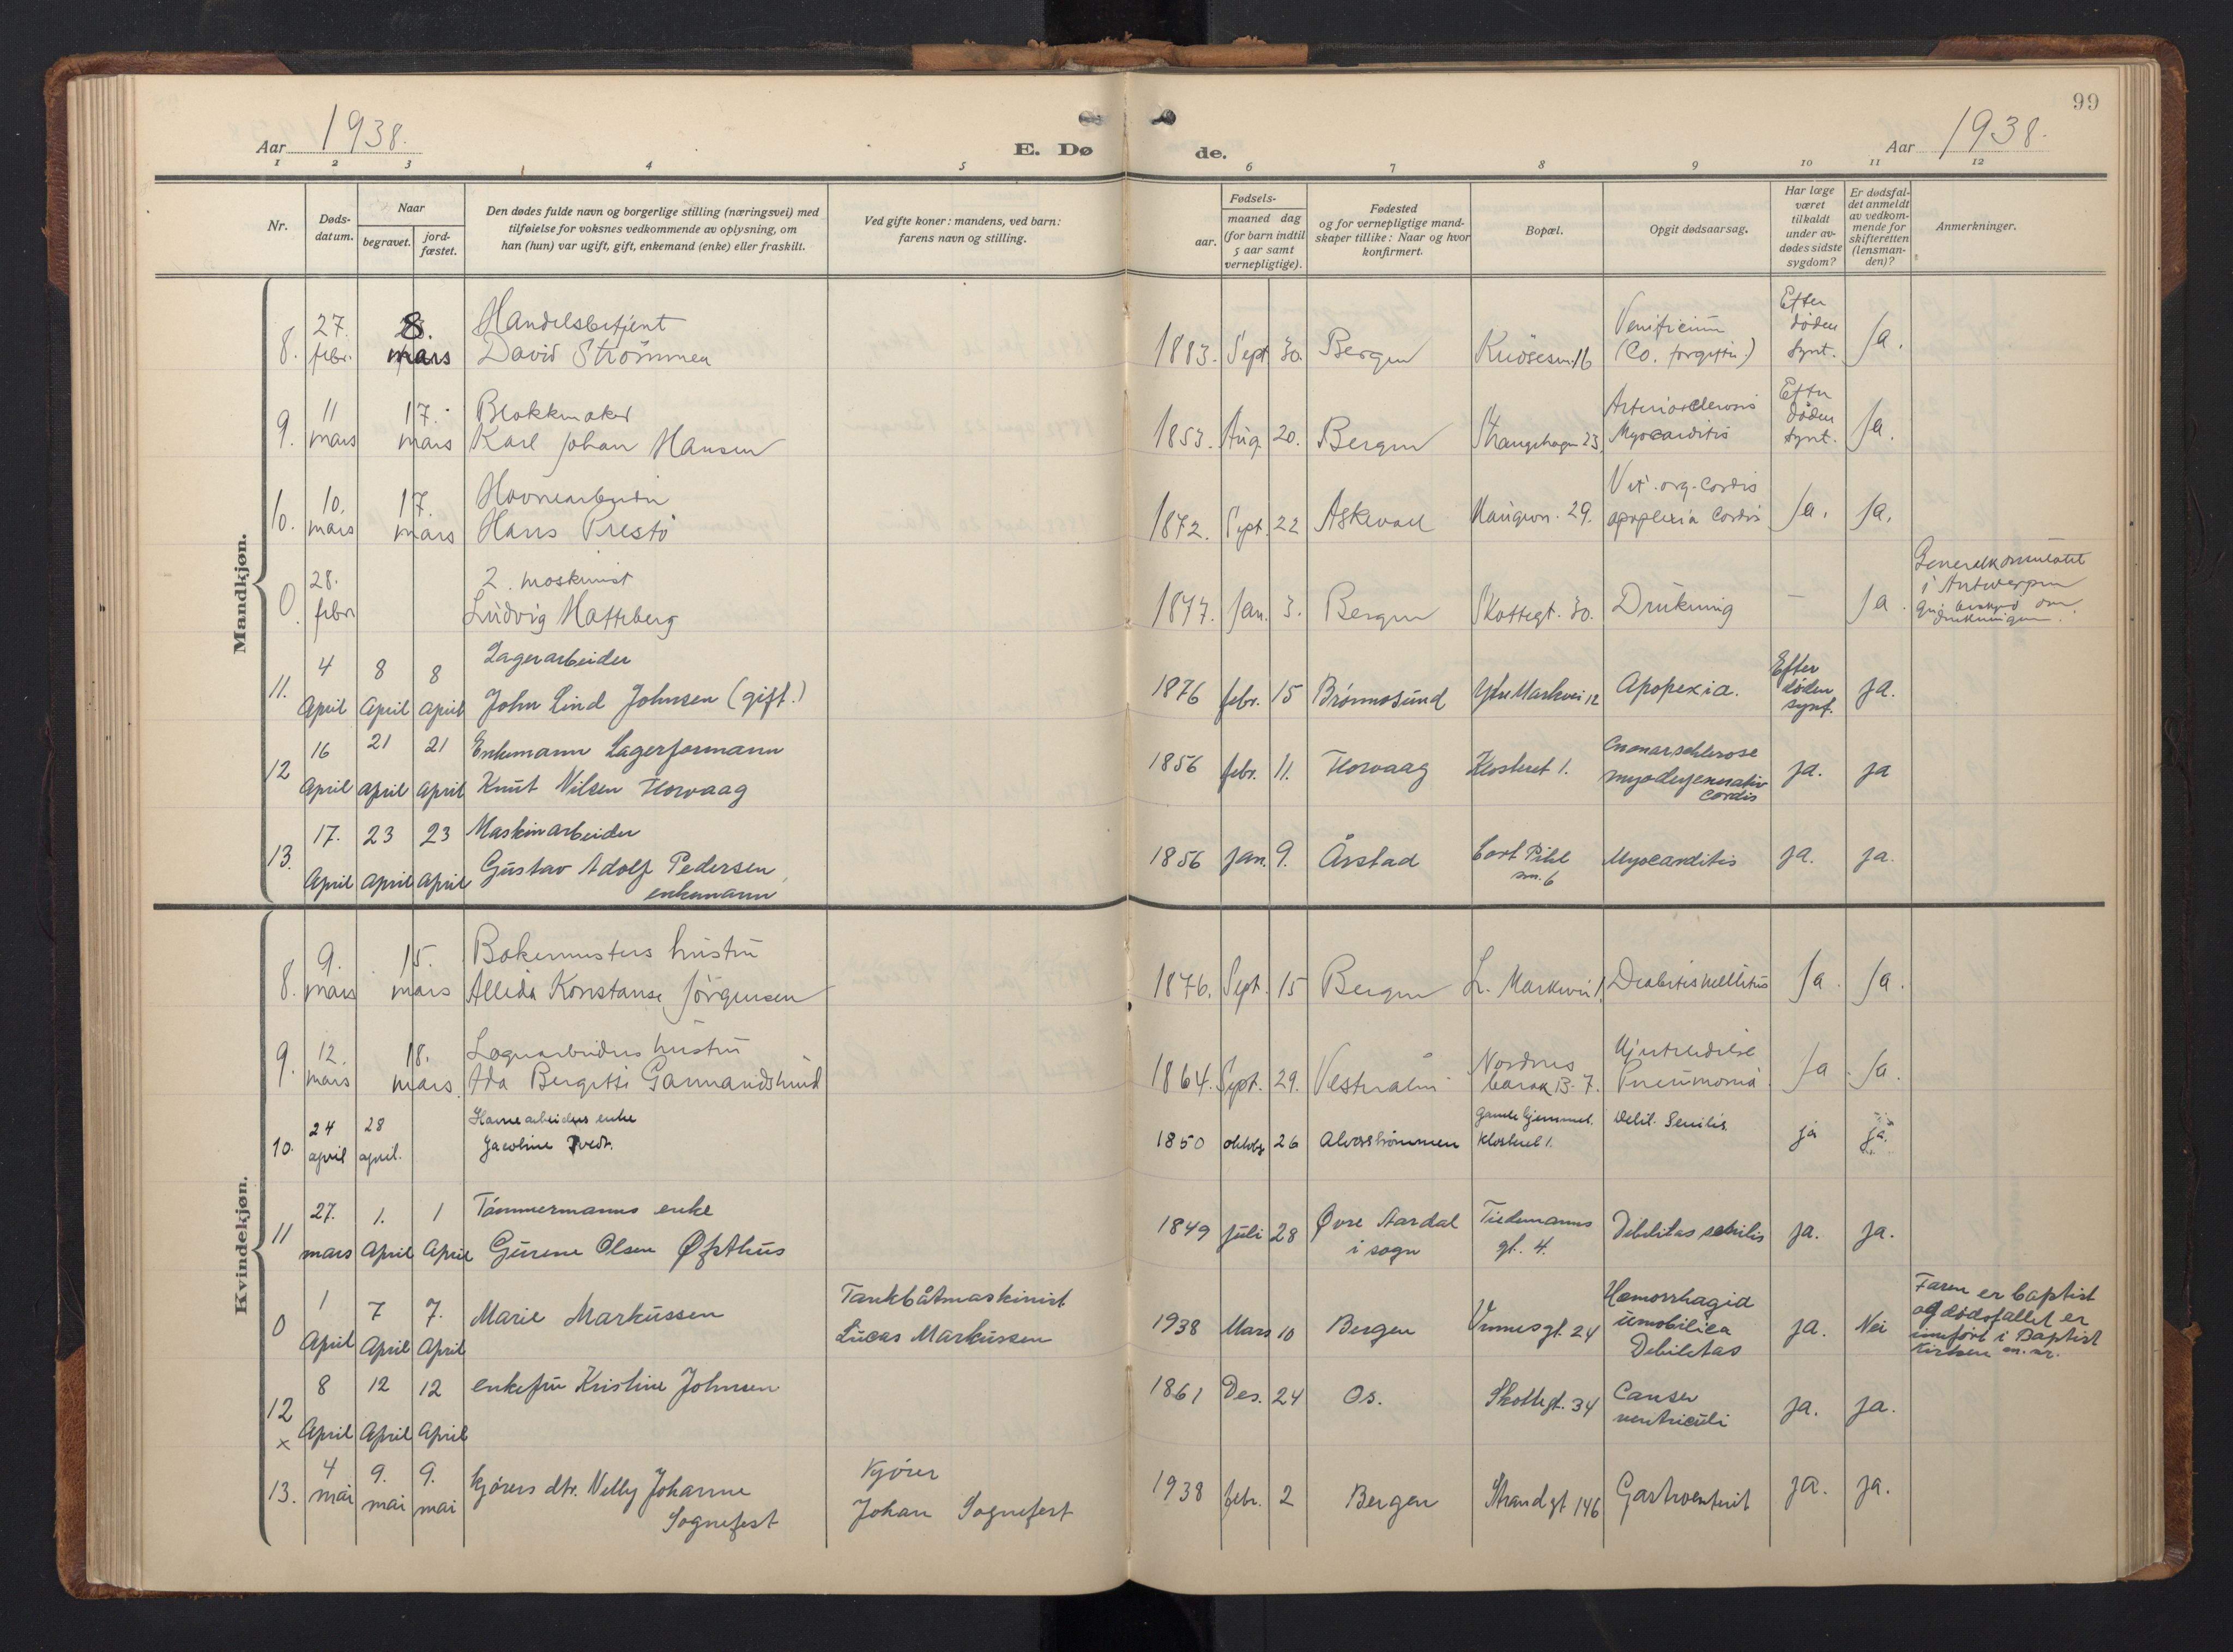 99
Aar 1938.
E. Dø
de.
Aar 1938.
1 2 3 4 5 6 7 8 9 10 11 12
Nr.
Døds-
datum.
Naar
begravet.
jord-
fæstet.
Den dødes fulde navn og borgerlige stilling (næringsvei) med
tilføielse for voksnes vedkommende av oplysning, om
han (hun) var ugift, gift, enkemand (enke) eller fraskilt.
Ved gifte koner: mandens, ved barn:
farens navn og stilling.
Fødsels-
aar.
maaned dag
(for barn indtil
5 aar samt
vernepligtige).
Fødested
og for vernepligtige mand-
skaper tillike: Naar og hvor
konfirmert.
Bopæl.
Opgit dødsaarsag.
Har læge
været
tilkaldt
under av-
dødes sidste
sygdom?
Er dødsfal-
det anmeldt
av vedkom-
mende for
skifteretten
(lensman-
den)?
Anmerkninger.
Mandkjøn.
8. 27. febr. 8. mars
Handelsbetjent
David Strömmen
1883. Sept 30. Bergen Knösesm. 16
Venificium
(Co. forgiftn.)
Efter
døden
synt.
Ja.
9. 11 mars 17. mars
Blokkmaker
Karl Johan Hansen
1853. Aug. 20. Bergen Strangehagen 23.
Arteriosclerosis
Myocarditis
Efter
døden
synt.
Ja.
10. 10. mars 17. mars
Havnearbeider
Hans Prestö
1872. Sept. 22 Askvoll 29.
Vit. org. Cordis
apoplexia Cordis
Ja. Ja.
0. 28. febr.
2. maskinist
Ludvig Hatteberg
1877. Jan. 3. Bergen Skottegt. 30. Drukning — Ja.
Generalkonsulatet
i Antwerpen
beskjed om
drukningen.
11. 4 April 8 April 8 April
Lagerarbeider
John Lind Johnsen (gift.)
1876 febr. 15 Brönnosund Ytre Markvei 12 Apopexia.
Efter
døden
synt.
ja.
12 16 April 21 April 21 April
Enkemann Lagerformann
Knut Nilsen Horvaag
1856 febr. 11. Horvaag Klosteret 1.
myodegenerativ
cordis
ja. ja
13. 17. April 23 April 23 April
Maskinarbeider
Gustav Adolf Pedersen,
enkemann
1856 jan. 9. Årstad
Cort Pihl
sm. 6
Myocarditis ja. ja.
Kvindekjøn.
8. 9. mars 15. mars
Bakermesters hustru
Allida Konstanse Jörgensen
1876. Sept. 15 Bergen L. Markvei 1. Diabetes mellitus Ja. Ja.
9. 12. mars 18. mars.
Lagerarbeiders hustru
Ada Bergitte Garmandslund
1864. Sept. 29.
Nordnes
barak B. 7.
Pneumonia. Ja. Ja.
10. 24 april 28 april.
Havnearbeiders enke
Jacobine Tvedt.
1850 oktobr 26 Alverströmmen
Gamle hjemmet.
Klosteret 1.
Debil. Senilis ja ja.
11 27. mars 1. April 1 April
Tömmermanns enke
Gurine Olsen Øfsthus
1849 juli 28
Øvre Aardal
i sogn
Tiedemanns
gt. 4.
Debilitas senilis ja. ja.
0 1 April 7 April 7. April
Marie Markussen
Tankbåtmaskinist
Lucas Markussen
1938 Mars 10 Bergen 24
Hæmorrhagia
umobilica
Debilitas
ja. Nei
Faren er baptist
og dødsfallet er
innført i Baptist
Kirken
12 x 8 April 12 April 12 April
enkefru Kristine Johnsen
1861 Des. 24 Os. Skottegt. 34
Canser
ventriculi
ja. ja.
13. 4 mai 9. mai 9. mai
Kjörers dtr. Nelly Johanne
Sognefest
Kjörer
Johan Sognefest
1938 febr. 2 Bergen Strandgt 146 Gastroenterit ja. ja.